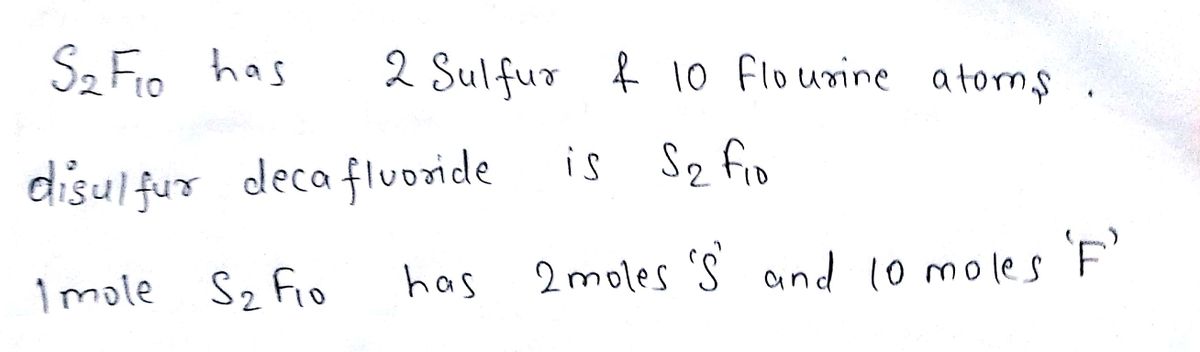 S₂F₁₀ has 2 Sulfur & 10 flourine atoms.
disulfur decafluoride is S₂f₁₀
1 mole S₂F₁₀ has 2 moles 'S' and 10 moles 'F'